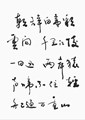 朝辞白帝彩
云间 千里江陵
一日还 两岸猿
声啼不住 轻
舟已过万重山